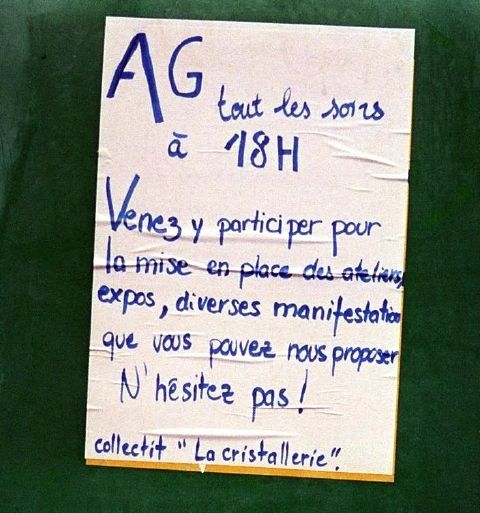 AG tout les soirs
à 18H
Venez y participer pour
la mise en place des ateliers,
expos, diverses manifestation
que vous pouvez nous proposer
N'hésitez pas !
collectif "La cristallerie".